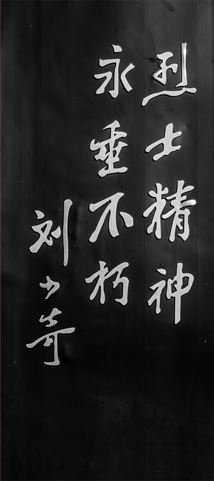 烈士精神
永垂不朽
刘少奇